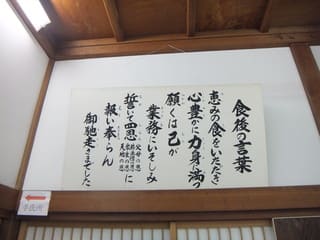 食後の言葉
恵みの食をいただき
心豊かに力身満つ
願くは己が
業務にいそしみ
誓して四恩に
父母の恩
天地の恩
報い奉らん
御馳走さまでした